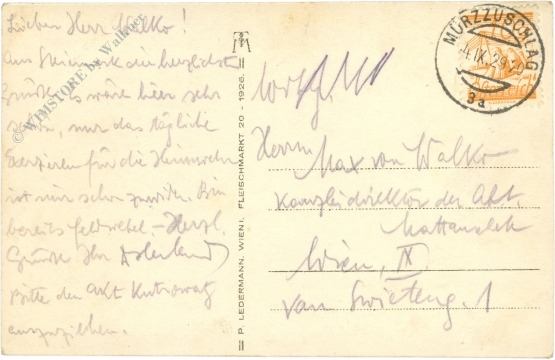 Lieben Herr Walko!
Aus Steiermark die herzlichsten
Grüße. Es wäre hier sehr
schön, nur das tägliche
Exerzieren für die Heimwehr
ist mir schon zuwider. Bin
bereits Feldwebel. – Herzl.
Grüße Ihr
Bitte den Akt
auszuziehen.
© WIMSTORE by Walluner
P. LEDERMANN, WIEN I, FLEISCHMARKT 20 – 1926.
MÜRZZUSCHLAG
IX. 29
3a
Herrn
Max von Walko
Kanzleidirektor der Akt.
Wien, IX
van Swieteng. 1